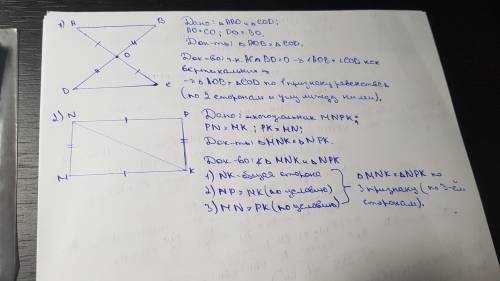 1) A B
Дано: △ABO и △COD;
AO=CO; DO=BO.
O
Док-ть: △AOB=△COD.
Док-во: т.к. AC∩BD=O → ∠AOB=∠COD как
вертикальные →
D C
→ △AOB=△COD по 1 признаку равенства
(по 2 сторонам и углу между ними).
2) N P
Дано: MNPK;
PN=MK; PK=MN;
Док-ть: △MNK=△NPK.
Док-во: △MNK и △NPK
M K
1) NK-общая сторона
2) NP=MK(по условию)
3) MN=PK(по условию)
△MNK=△NPK по
3 признаку (по 3-ём
сторонам).